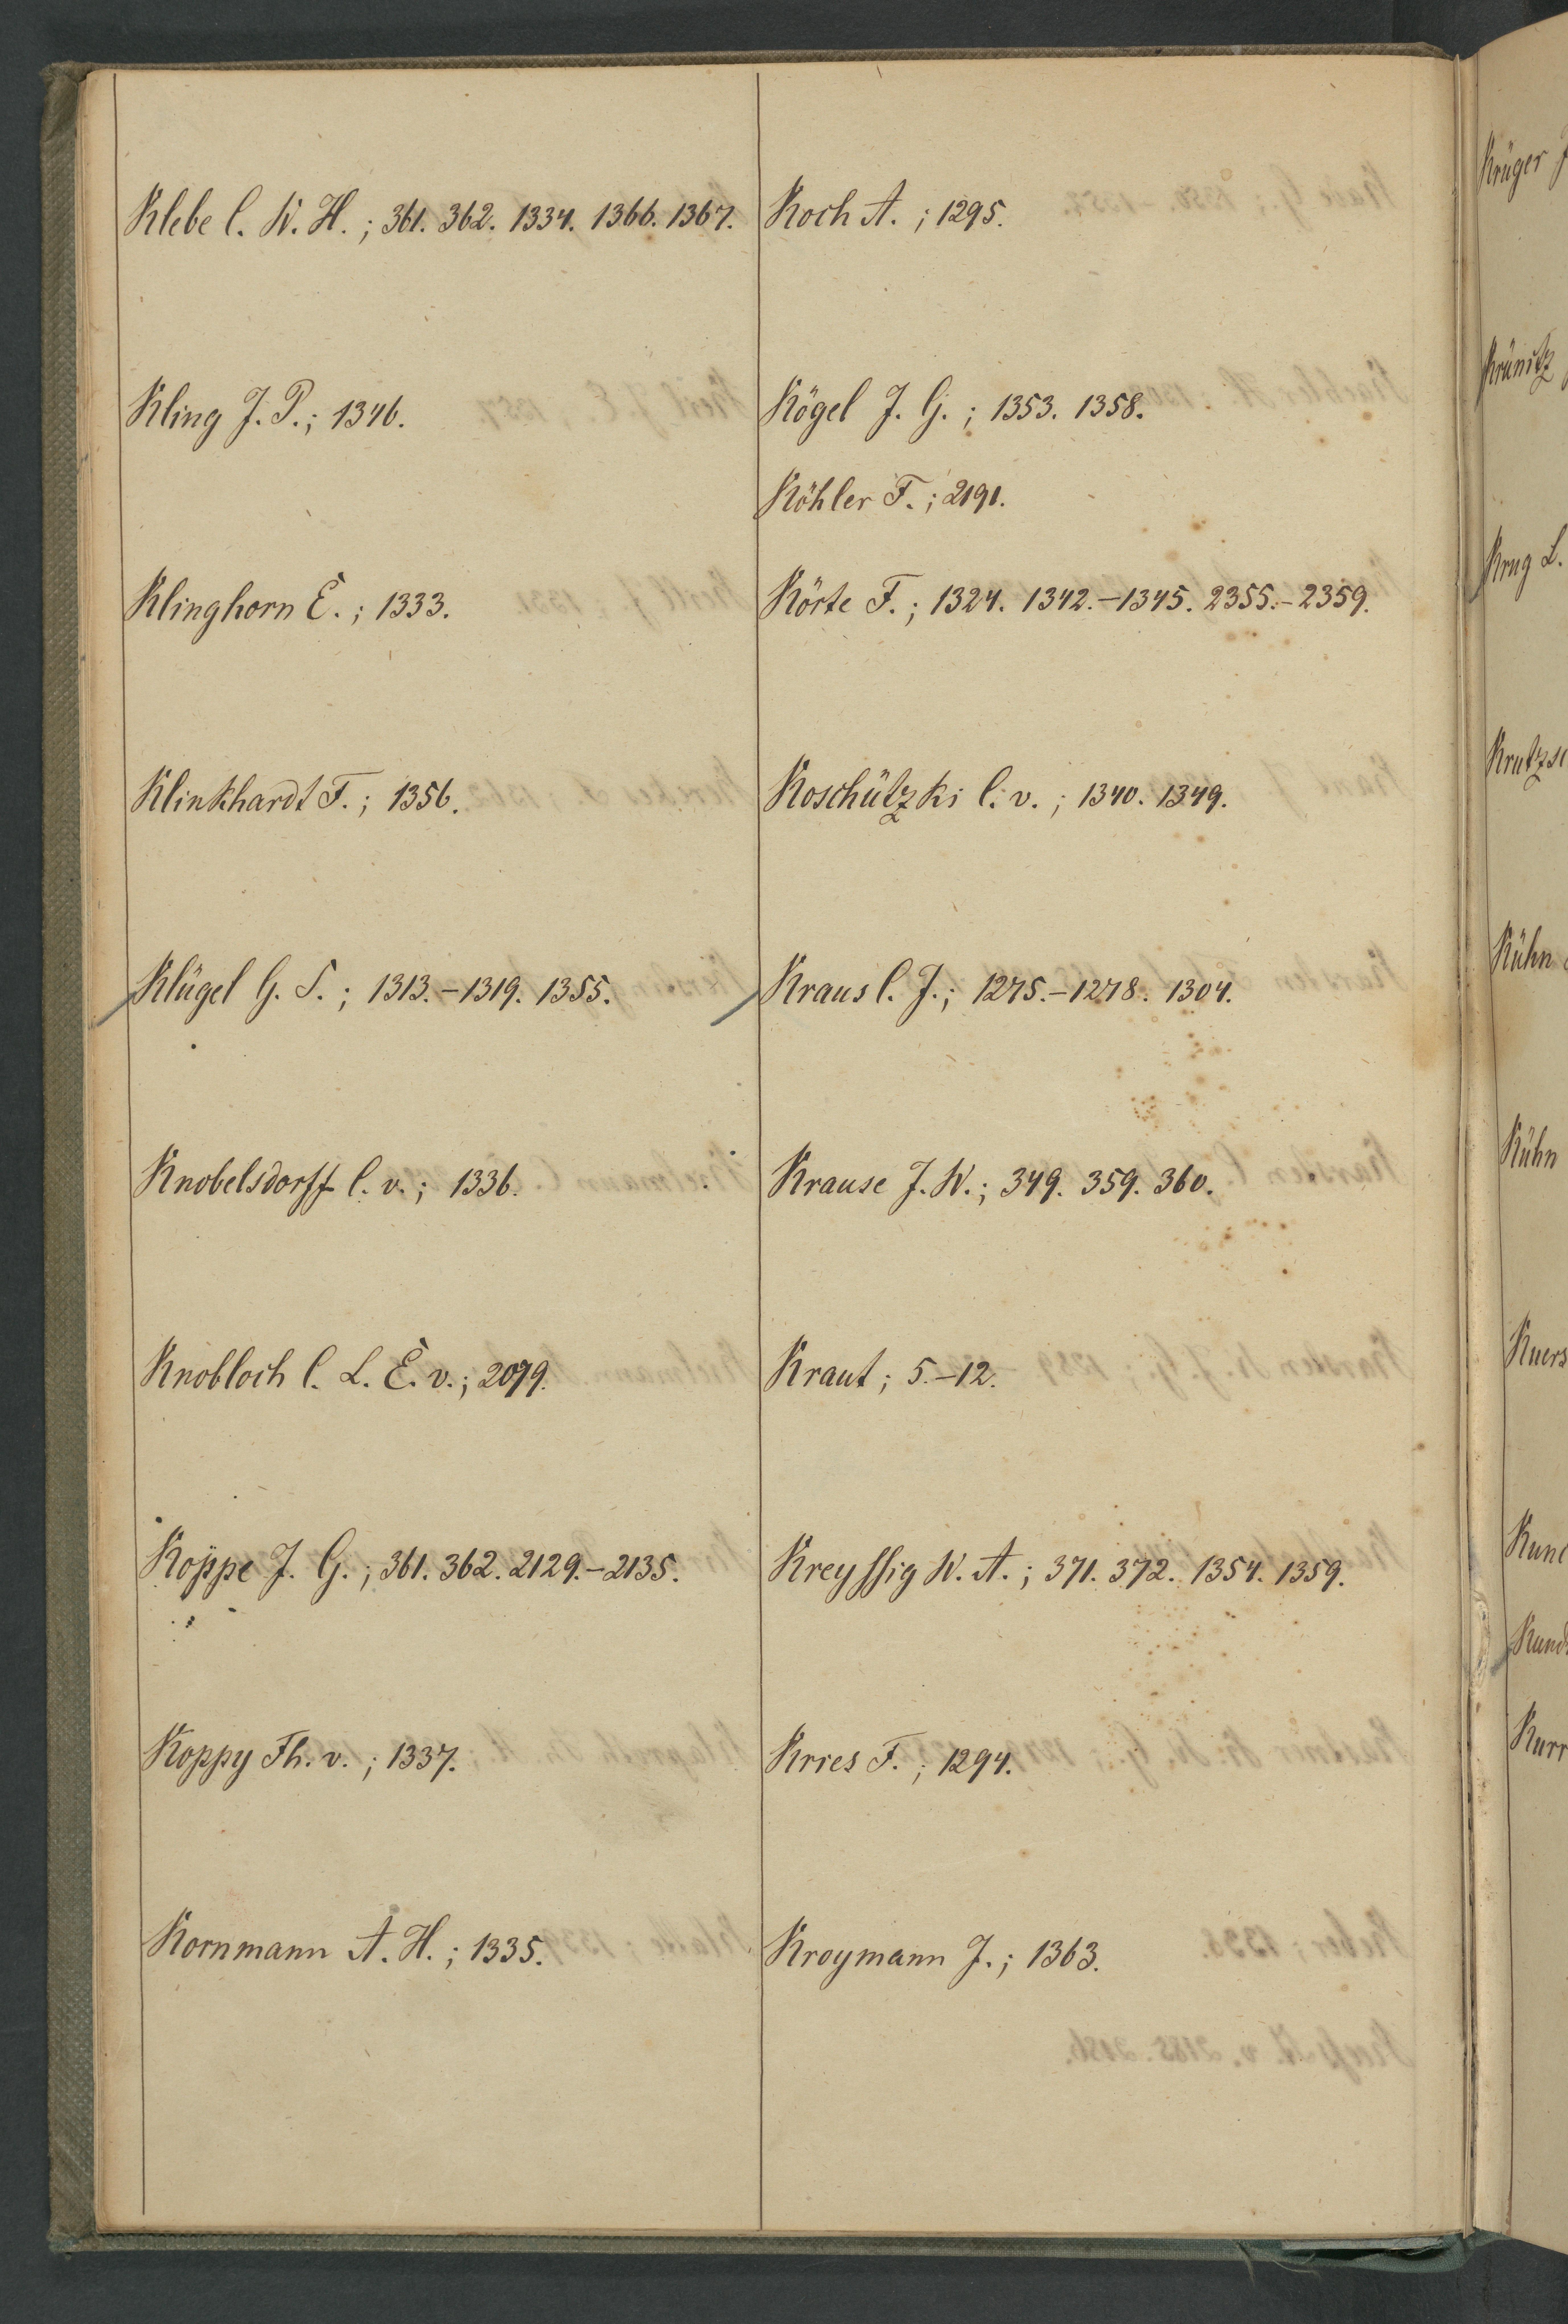 Klebe C. W. H.; 361. 362. 1334. 1366. 1367.
Kling J. P.; 1346.
Klinghorn E.; 1333.
Klinkhardt F.; 1356.
Klügel G. S.; 1313.-1319. 1355.
Knobelsdorff C. v.; 1336.
Knobloch C. L. E. v.; 2079.
Koppe J. G.; 361. 362. 2129.-2135.
Koppy Fh. v.; 1337.
Kornmann A. H.; 1335.
Koch A.; 1295.
Kögel J. G.; 1353. 1358.
Köhler F.; 2191.
Körte F.; 1324. 1342.-1345. 2355.-2359.
Koschützki C. v.; 1340. 1349.
Kraus C. J.; 1275.-1278. 1304.
Krause J. W.; 349. 359. 360.
Kraut; 5.-12.
Kreyssig W. A.; 371. 372. 1354. 1359.
Kries F.; 1294.
Kroymann J.; 1363.
Krüger J
Krünitz
Krug L.
Krutzsc
Kühn
Kühn
Kuers
Kun
Kund
Kurr